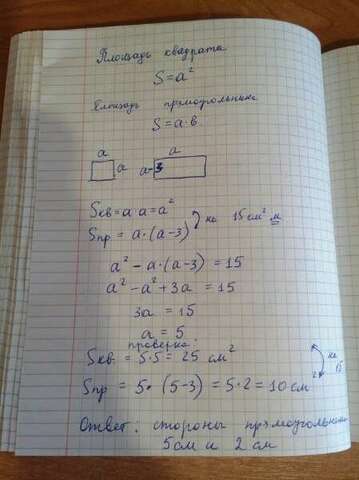 Площадь квадрата
S=a²
Площадь прямоугольника
S=a·в
a a
a a-3
Sкв=a a=a² на 15 см² м
Sпр = a·(a-3)
a² - a·(a-3) = 15
a² - a² + 3a = 15
3a = 15
a = 5
проверка:
Sкв. = 5·5 = 25 см² на
Sпр = 5·(5-3) = 5·2 = 10 см 15
Ответ: стороны прямоугольника
5 см и 2 см